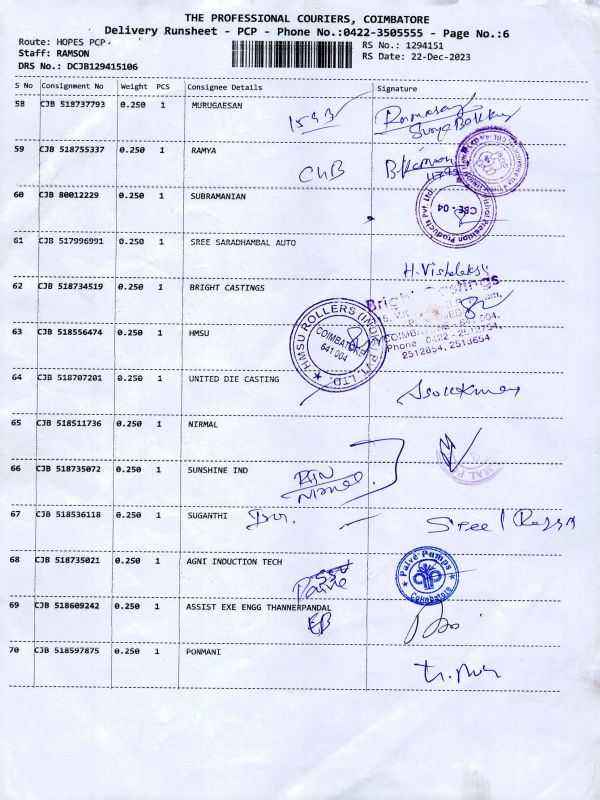 THE PROFESSIONAL COURIERS, COIMBATORE
Delivery Runsheet - PCP - Phone No.:0422-3505555 - Page No.:6
Route: HOPES PCP
RS No.: 1294151
Staff: RAMSON
RS Date: 22-Dec-2023
DRS No.: DCJB129415106
S No Consignment No Weight PCS Consignee Details Signature
58 CJB 518737793 0.250 1 MURUGAESAN
59 CJB 518755337 0.250 1 RAMYA
60 CJB 80012229 0.250 1 SUBRAMANIAN
CBE - 04
61 CJB 517996991 0.250 1 SREE SARADHAMBAL AUTO
62 CJB 518734519 0.250 1 BRIGHT CASTINGS
HMSU ROLLERS (INDIA) PVT. LTD.
COIMBATORE
641 004
63 CJB 518556474 0.250 1 HMSU
Phone 0422 - 2512754,
2512854, 2513654
64 CJB 518707201 0.250 1 UNITED DIE CASTING
65 CJB 518511736 0.250 1 NIRMAL
66 CJB 518735072 0.250 1 SUNSHINE IND
67 CJB 518536118 0.250 1 SUGANTHI
68 CJB 518735021 0.250 1 AGNI INDUCTION TECH
Palve Pumps
Coimbatore
69 CJB 518609242 0.250 1 ASSIST EXE ENGG THANNERPANDAL
EB
70 CJB 518597875 0.250 1 PONMANI